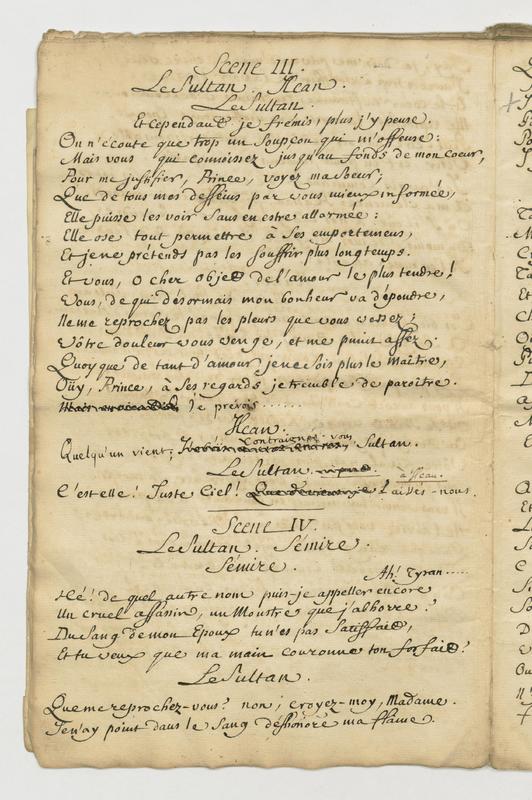 Scene III.
Le Sultan. Hcan.
Le Sultan.
Et cependant je fremis, plus j'y pense.
On n'écoute que trop un soupçon qui m'offense:
Mais vous qui connoissez jusqu'au fonds de mon coeur,
Pour me justifier, Prince, voyez ma Soeur;
Que de tous mes desseins par vous mieux informée,
Elle puisse les voir sans en estre allarmée:
Elle ose tout permettre à ses emportemens,
Et je ne prétends pas les souffrir plus longtemps.
Et vous, o cher objet de l'amour le plus tendre!
Vous, de qui désormais mon bonheur va dépendre,
Ne me reprochez pas les pleurs que vous versez;
Vôtre douleur vous venge, et me punit assez.
Quoy que de tant d'amour je ne sois plus le maître,
Oüy, Prince, à ses regards je tremble de paroître.
Je prévois......
Hcan.
contraignez-vous
Quelqu'un vient; Sultan.
Le Sultan. à Hcan.
C'est elle! Juste Ciel! Laissés-nous.
Scene IV.
Le Sultan. Sémire.
Sémire.
Ah! Tyran.....
Hé! de quel autre nom puis-je appeller encore
Un cruel assassin, un Monstre que j'abhorre?
Du sang de mon Epoux tu n'es pas satisfait,
Et tu veux que ma main couronne ton forfait?
Le Sultan.
Que me reprochez-vous? non; croyez-moy, Madame.
Je n'ay point dans le sang déshonoré ma flâme.